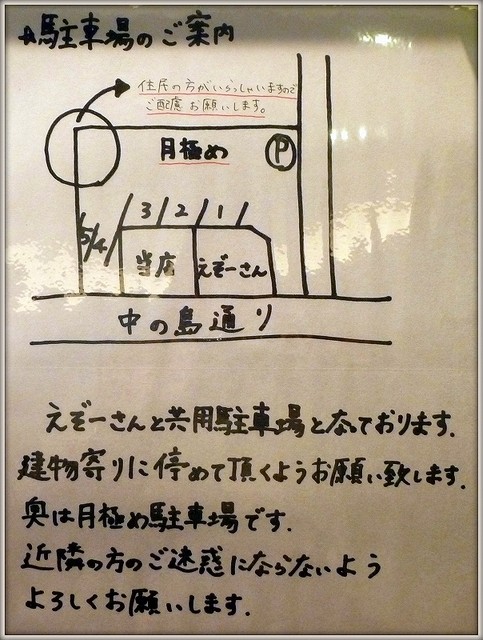 駐車場のご案内
住居の方がいらっしゃいますので
ご配慮お願いします。
月極め
P
3 2 1
5 4
当店 えぞーさん
中の島通り
えぞーさんと共用駐車場となっております.
建物寄りに停めて頂くようお願い致します.
奥は月極め駐車場です.
近隣の方のご迷惑にならないよう
よろしくお願いします.